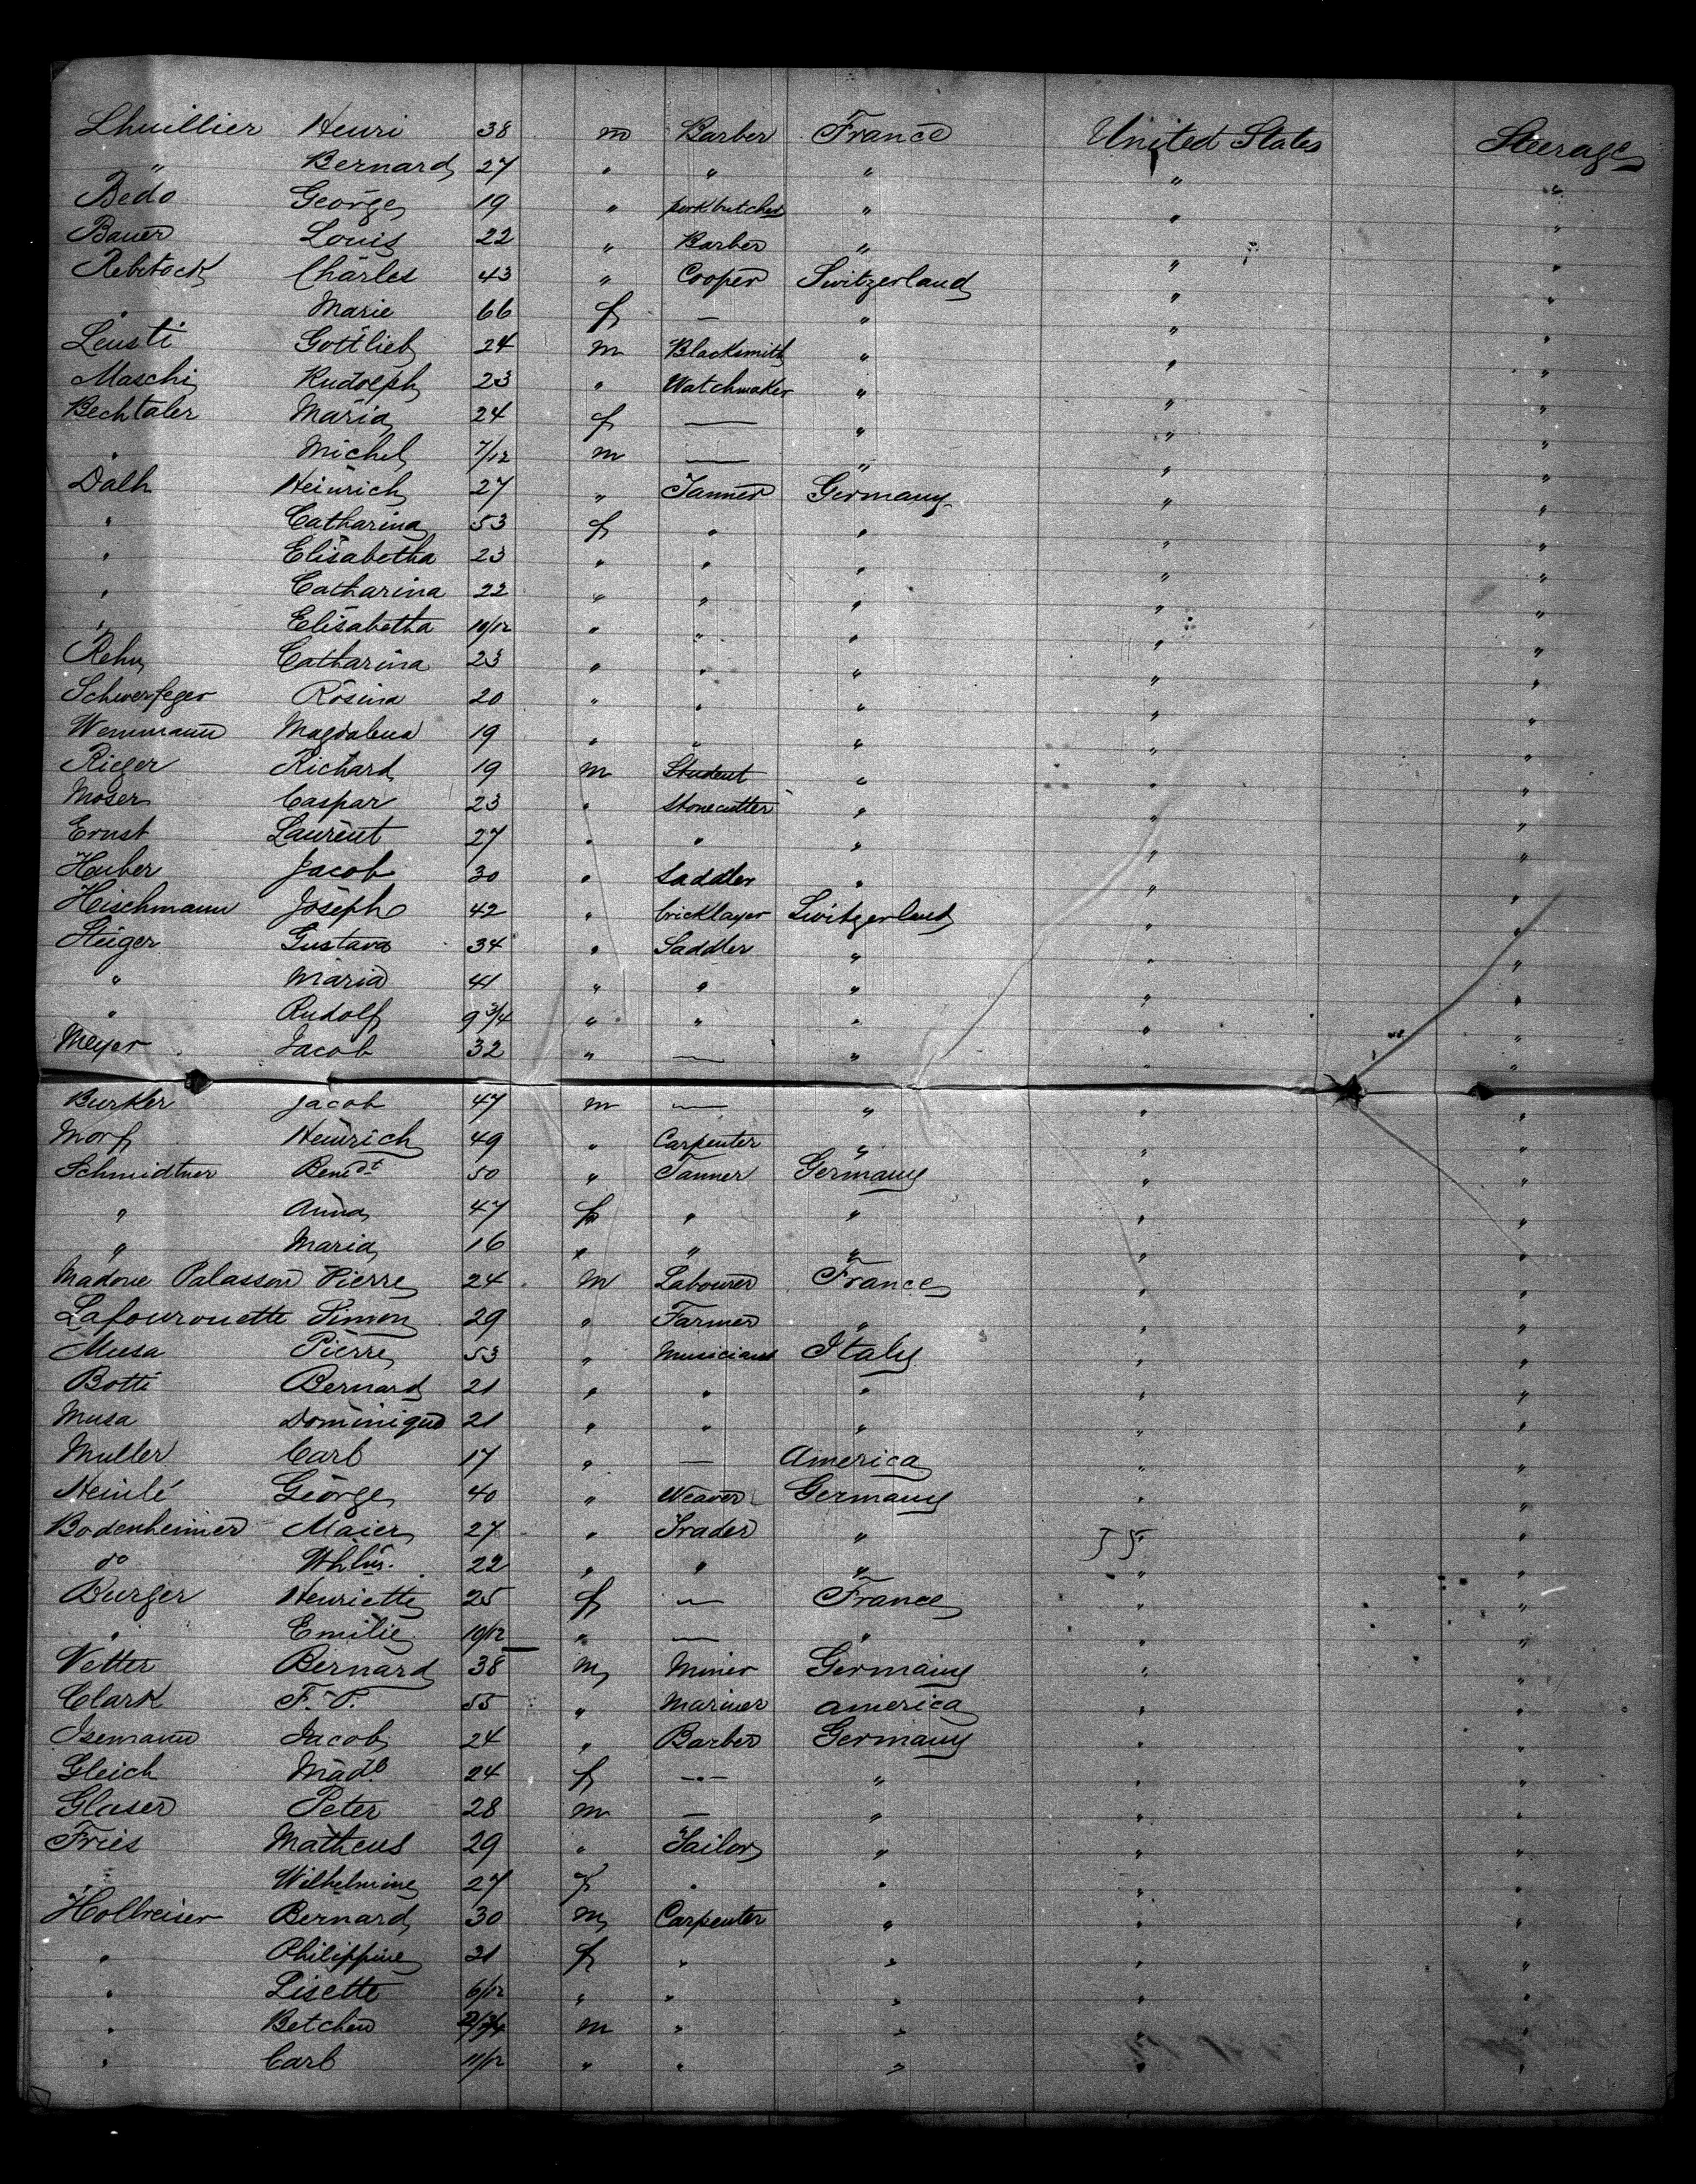 Lhuillier Henri 38 m Barber France United States Steerage
" Bernard 27 " " " " "
Bedo George 19 " porkbutcher " " "
Bauer Louis 22 " Barber " " "
Rebstock Charles 43 " Cooper Switzerland " "
" Marie 66 f — " " "
Leusti Gottlieb 24 m Blacksmith " " "
Maschi Rudolph 23 " Watchmaker " " "
Bechtaler Maria 24 f — " " "
" Michel 7/12 m — " " "
Dalh Heinrich 27 " Tanner Germany " "
" Catharina 53 f " " " "
" Elisabetha 23 " " " " "
" Catharina 22 " " " " "
" Elisabetha 10/12 " " " " "
Rehn Catharina 23 " " " " "
Schwerfeger Rosina 20 " " " " "
Wernmann Magdalena 19 " " " " "
Rieger Richard 19 m Student " " "
Moser Caspar 23 " Stonecutter " " "
Ernst Laurent 27 " " " " "
Hauber Jacob 30 " Saddler " " "
Heischmann Joseph 42 " bricklayer Switzerland " "
Steiger Gustava 34 " Saddler " " "
" Maria 41 " " " " "
" Rudolf 9 3/4 " " " " "
Meyer Jacob 32 " — " " "
Burker Jacob 47 m — " " "
Morf Heinrich 49 " Carpenter " " "
Schmidtner Bendt 50 " Tanner Germany " "
" Anna 47 f " " " "
" Maria 16 " " " " "
Madone Palasson Pierre 24 m Labourer France " "
Lafourouette Simon 29 " Farmer " " "
Musa Pierre 53 " Musician Italy " "
Botti Bernard 21 " " " " "
Musa Dominique 21 " " " " "
Muller Carl 17 " — America " "
Heinlé George 40 " Weaver Germany " "
Bodenheimer Maier 27 " Trader " "
do 22 " " " " "
Burger Henriette 25 f — France " "
" Emilie 10/12 " — " " "
Vetter Bernard 38 m Miner Germany " "
Clark F. P. 55 " Mariner America " "
Isemann Jacob 24 " Barber Germany " "
Gleich Made 24 f — " " "
Glaser Peter 28 m — " " "
Fries Matheus 29 " Tailor " " "
" Wilhelmine 27 f " " " "
Hollreiser Bernard 30 m Carpenter " " "
" Philippine 21 f " " " "
" Lisette 6/12 " " " " "
" Betchen m " " " "
" Carl 11/12 " " " " "